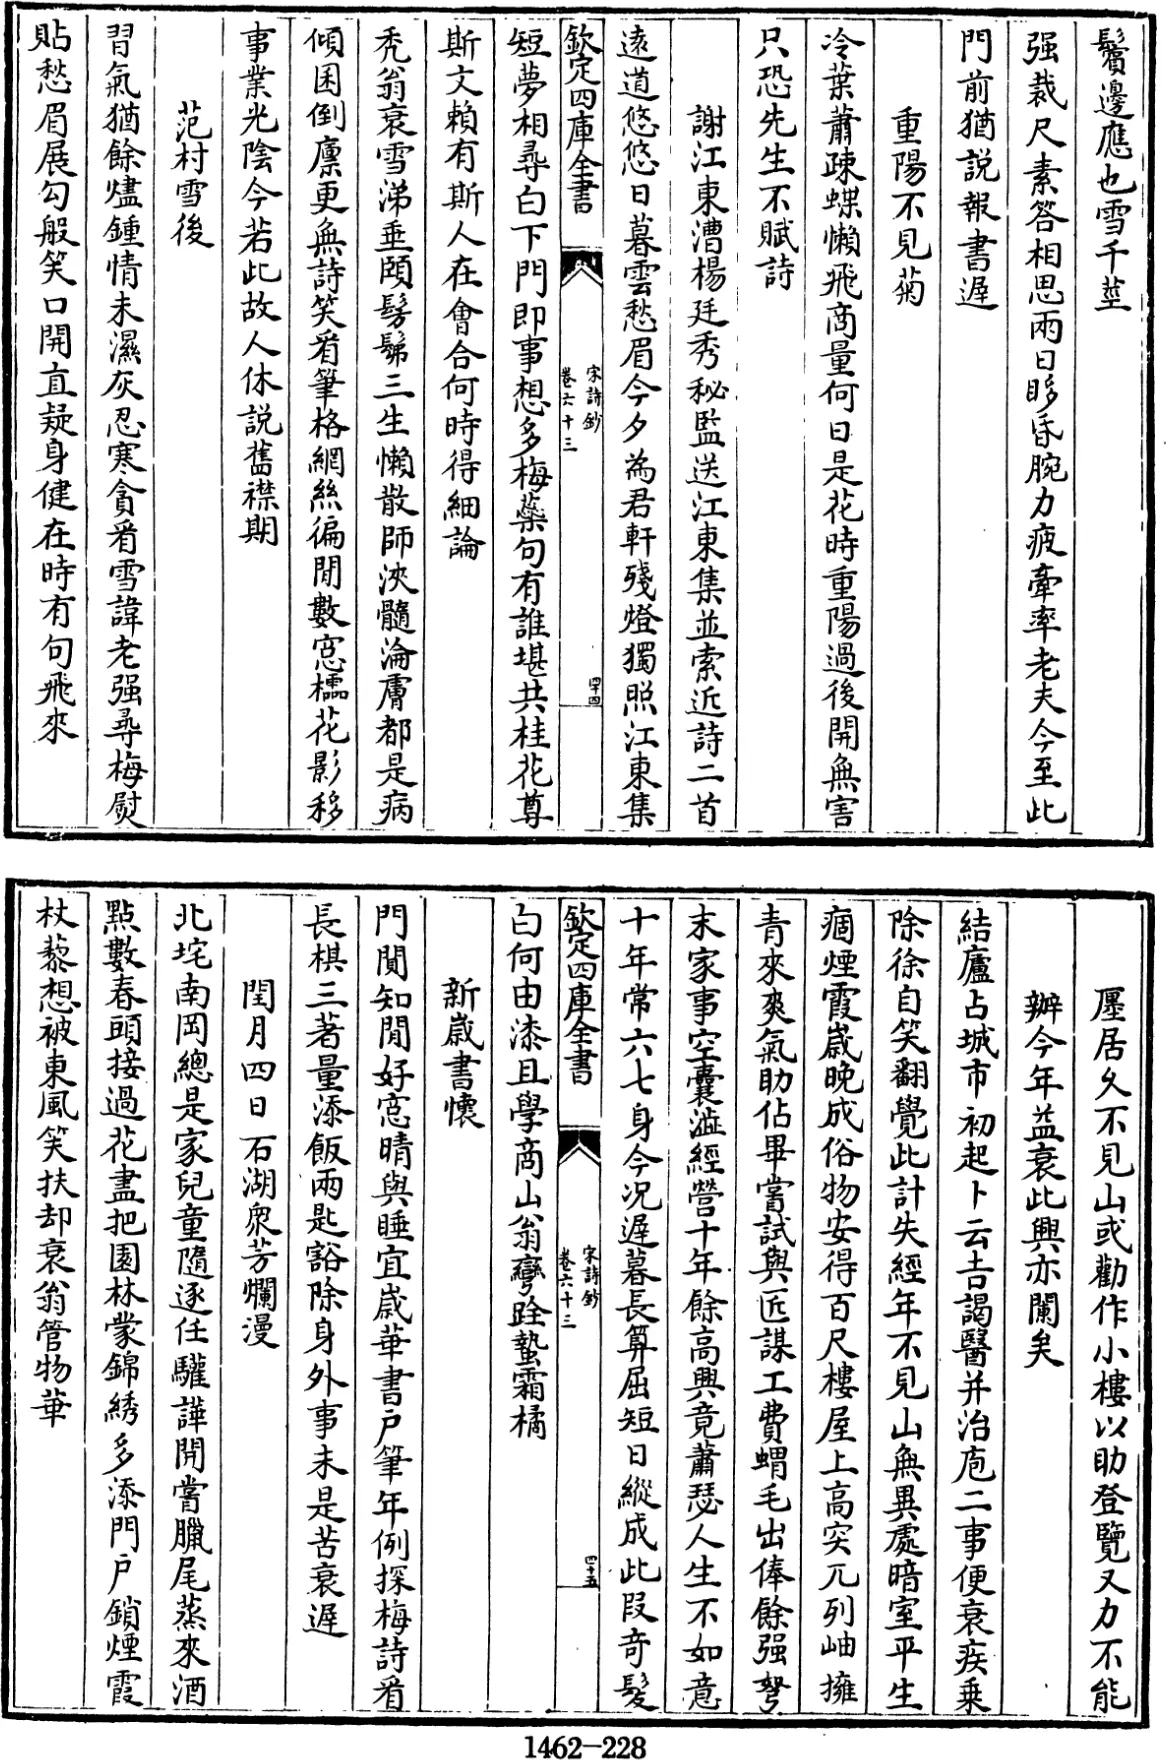 鬢邊應也雪千莖
强裁尺素答相思兩日眵昏腕力疲牽率老夫今至此
門前猶説報書遲
重陽不見菊
冷葉蕭疎蝶懶飛商量何日是花時重陽過後開無害
只恐先生不賦詩
謝江東漕楊廷秀秘監送江東集並索近詩二首
遠道悠悠日暮雲愁眉今夕為君軒殘燈獨照江東集
欽定四庫全書
宋詩鈔
卷六十三
四十四
短夢相尋白下門即事想多梅蘂句有誰堪共桂花尊
斯文賴有斯人在會合何時得細論
禿翁衰雪涕垂頤髣髴三生懶散師浹髓淪膚都是病
傾囷倒廪更無詩笑看筆格網絲徧閒數窓櫺花影移
事業光陰今若此故人休説舊襟期
范村雪後
習氣猶餘燼鍾情未濕灰忍寒貪看雪諱老强尋梅熨
貼愁眉展勾般笑口開直疑身健在時有句飛來
厪居久不見山或勸作小樓以助登覽又力不能
辦今年益衰此興亦闌矣
結廬占城市初起卜云吉謁醫并治庖二事便衰疾乗
除徐自笑翻覺此計失經年不見山無異處暗室平生
痼煙霞歲晩成俗物安得百尺樓屋上高突兀列岫擁
青來爽氣助佔畢嘗試與匠謀工費蝟毛出俸餘强弩
末家事空囊澁經營十年餘高興竟蕭瑟人生不如意
十年常六七身今况遲暮長算屈短日縱成此段奇髮
欽定四庫全書
宋詩鈔
卷六十三
四十五
白何由漆且學商山翁彎跧蟄霜橘
新歲書懷
門閴知閒好窓晴與睡宜歲華書戸筆年例探梅詩看
長棋三著量添飯兩匙豁除身外事未是苦衰遲
閏月四日石湖衆芳爛漫
北垞南岡總是家兒童隨逐任驩譁開嘗臘尾蒸來酒
點數春頭接過花盡把園林蒙錦綉多添門戸鎖煙霞
杖藜想被東風笑扶却衰翁管物華
1462—228